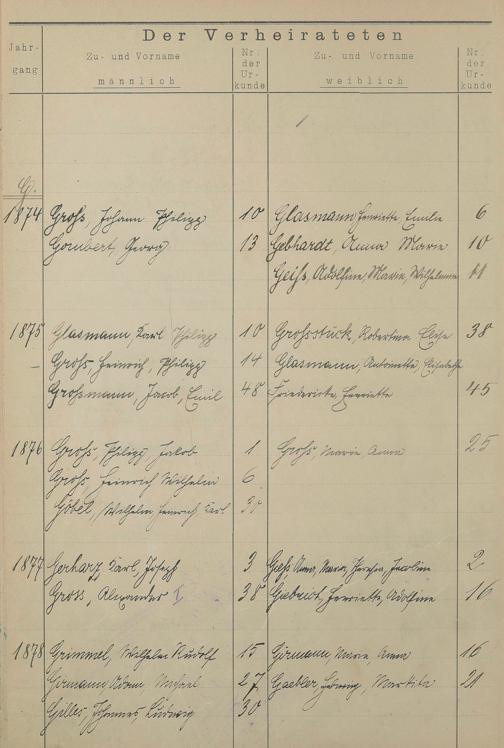 Der Verheirateten
Jahr-
gang
Zu- und Vorname
männlich
Nr.
der
Ur-
kunde
Zu- und Vorname
weiblich
Nr.
der
Ur-
kunde
G.
1874 Groß, Johann Philipp 10 Glasmann Henriette, Emilie 6
Gombert, Georg 13 Gebhardt, Anna Marie 10
Geiß, Adolfine, Marie, Wilhelmine 11
1875 Glasmann, Karl Philipp 10 Großstück, Robertine Elise 38
– Groß, Heinrich, Philipp 14 Glasmann, Antonette, Elisabeth
Großmann, Jacob, Emil 48 Friedericke, Henriette 45
1876 Groß, Philipp Jakob 1 Groß, Marie Anna 25
Groß, Heinrich Wilhelm 6
Göbel, Wilhelm Heinrich Karl 30
1877 Gerharz, Karl, Joseph 3 Anna, Maria, Theresia, Jacobine 2
Gross, Alexander I 38 Henriette, Adolfine 16
1878 Grimmel, Wilhelm Rudolf 15 Girmann, Maria, Anna 16
Girmann Adam Michael 27 Gaebler 21
Gilles, Johannes, Ludwig 30